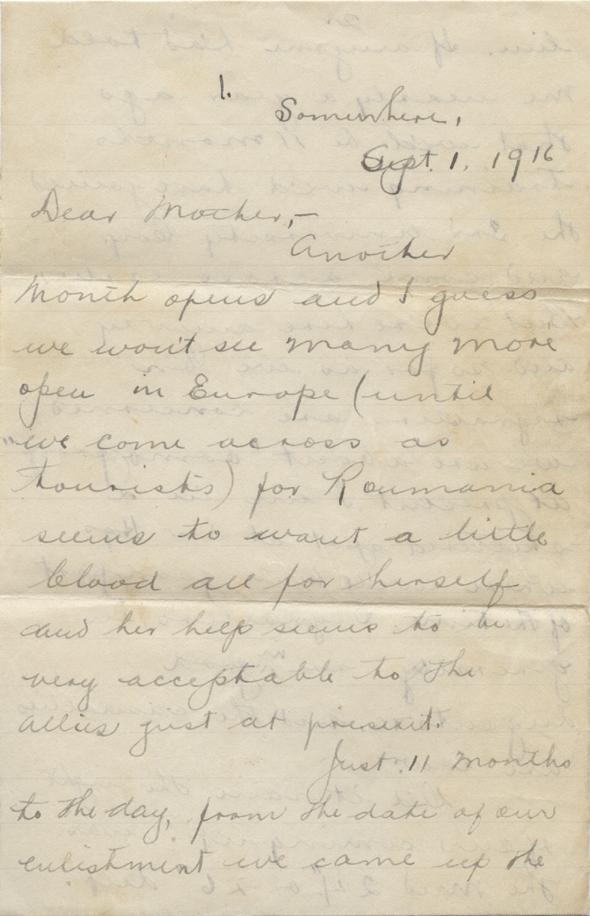 1.
Somewhere,
Sept. 1, 1916
Dear Mother,-
Another
month opens and I guess
we won't see many more
open in Europe (until
we come across as
tourists) for Roumania
seems to want a little
blood all for herself
and her help seems to be
very acceptable to the
allies just at present.
Just 11 months
to the day, from the date of our
enlistment we came up the